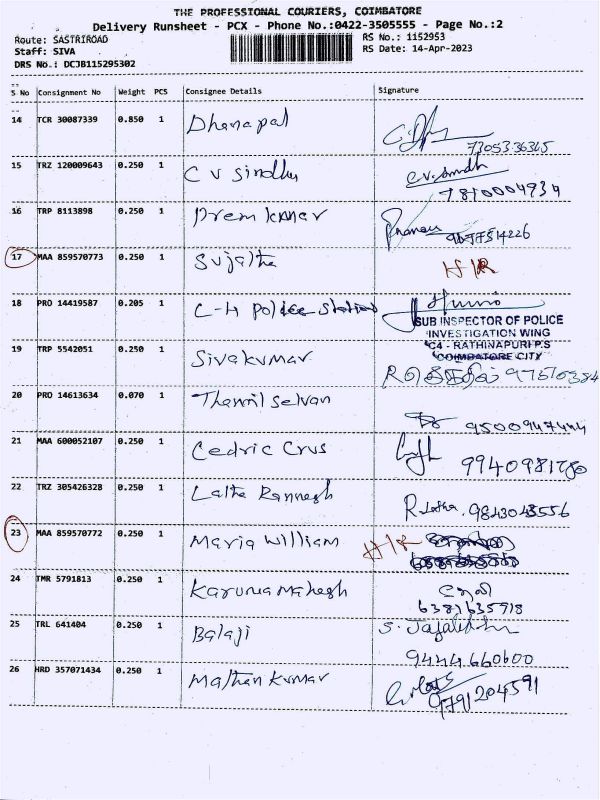 THE PROFESSIONAL COURIERS, COIMBATORE
Delivery Runsheet - PCX - Phone No.:0422-3505555 - Page No.:2
Route: SASTRIROAD RS No.: 1152953
Staff: SIVA RS Date: 14-Apr-2023
DRS No.: DCJB115295302
S No Consignment No Weight PCS Consignee Details Signature
14 TCR 30087339 0.850 1 Dhanapal
7305336365
15 TRZ 120009643 0.250 1 C V Sindhu
7810004934
16 TRP 8113898 0.250 1 Prem kumar
17 MAA 859570773 0.250 1 Sujatha H/R
18 PRO 14419587 0.205 1 C-4 Police Station
SUB INSPECTOR OF POLICE
INVESTIGATION WING
C4 - RATHINAPURI P.S
COIMBATORE CITY
19 TRP 5542051 0.250 1 Sivakumar
20 PRO 14613634 0.070 1 Thamil selvan
21 MAA 600052107 0.250 1 Cedric Crus
22 TRZ 305426328 0.250 1 Latha Rannesh
9843043556
23 MAA 859570772 0.250 1 Maria William H/R
24 TMR 5791813 0.250 1 Karuna Mahesh
6381635918
25 TRL 641404 0.250 1 Balaji
9444660600
26 HRD 357071434 0.250 1 Mathan kumar
9791204591